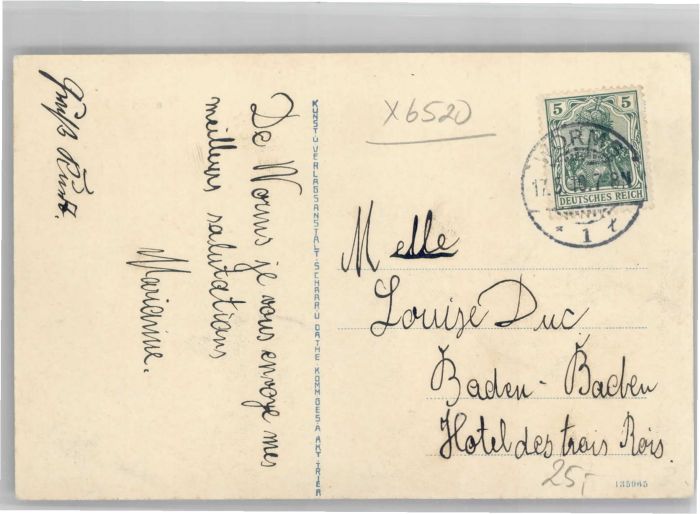 Gruß Kurt.
De Worms je vous envoye mes
meilleurs salutations
Marianne.
KUNST U. VERLAGSANSTALT SCHAAR U. DATHE KOMM. GES. A. AKT. TRIER
X6520
5 5
DEUTSCHES REICH
WORMS
17.
* 1 t
Melle
Louize Duc
Baden-Baden
Hotel des trois Rois.
25,-
135965